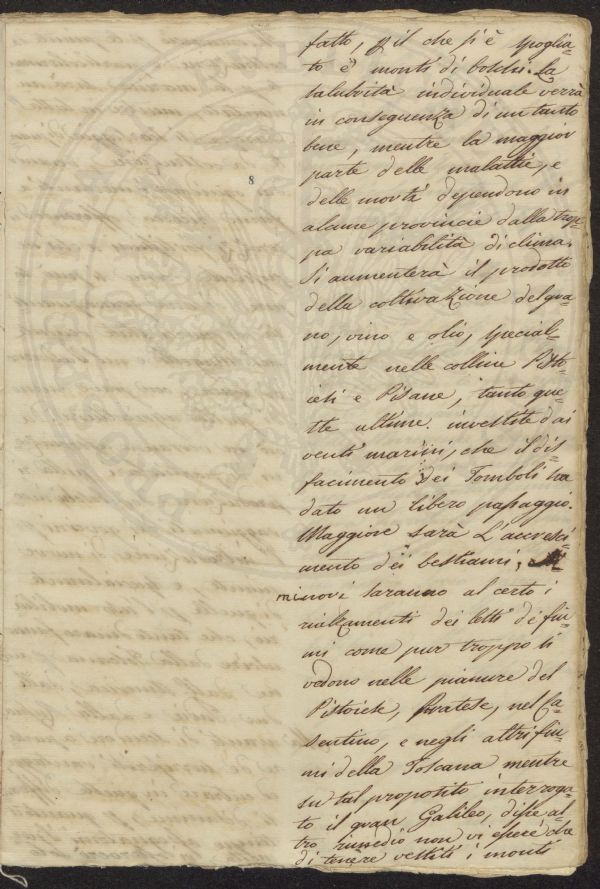 fatto, q il che si è spoglia-
to è monti di boschi. La
salubrità individuale verrà
in conseguenza di un tanto
bene, mentre la maggior
parte delle malattie, e
8
delle morti dependono in
alcune provincie dalla trop-
pa variabilità di clima.
Si aumenterà il prodotto
della coltivazione del gra-
no, vino e olio, special-
mente nelle colline Pisto-
iesi e Pisane, tanto que-
ste ultime investite dai
venti marini, che il dis-
facimento dei Tomboli ha
dato un libero passaggio.
Maggiore sarà l'accresci-
mento dei bestiami,
minori saranno al certo i
rialzamenti dei letti de fiu-
mi come pur troppo si
vedono nelle pianure del
Pistoiese, Pratese, nel Ca-
sentino, e negli altri fiu-
mi della Toscana mentre
su tal proposito interroga-
to il gran Galileo, disse al-
tro rimedio non vi essere che
di tenere vestiti i monti